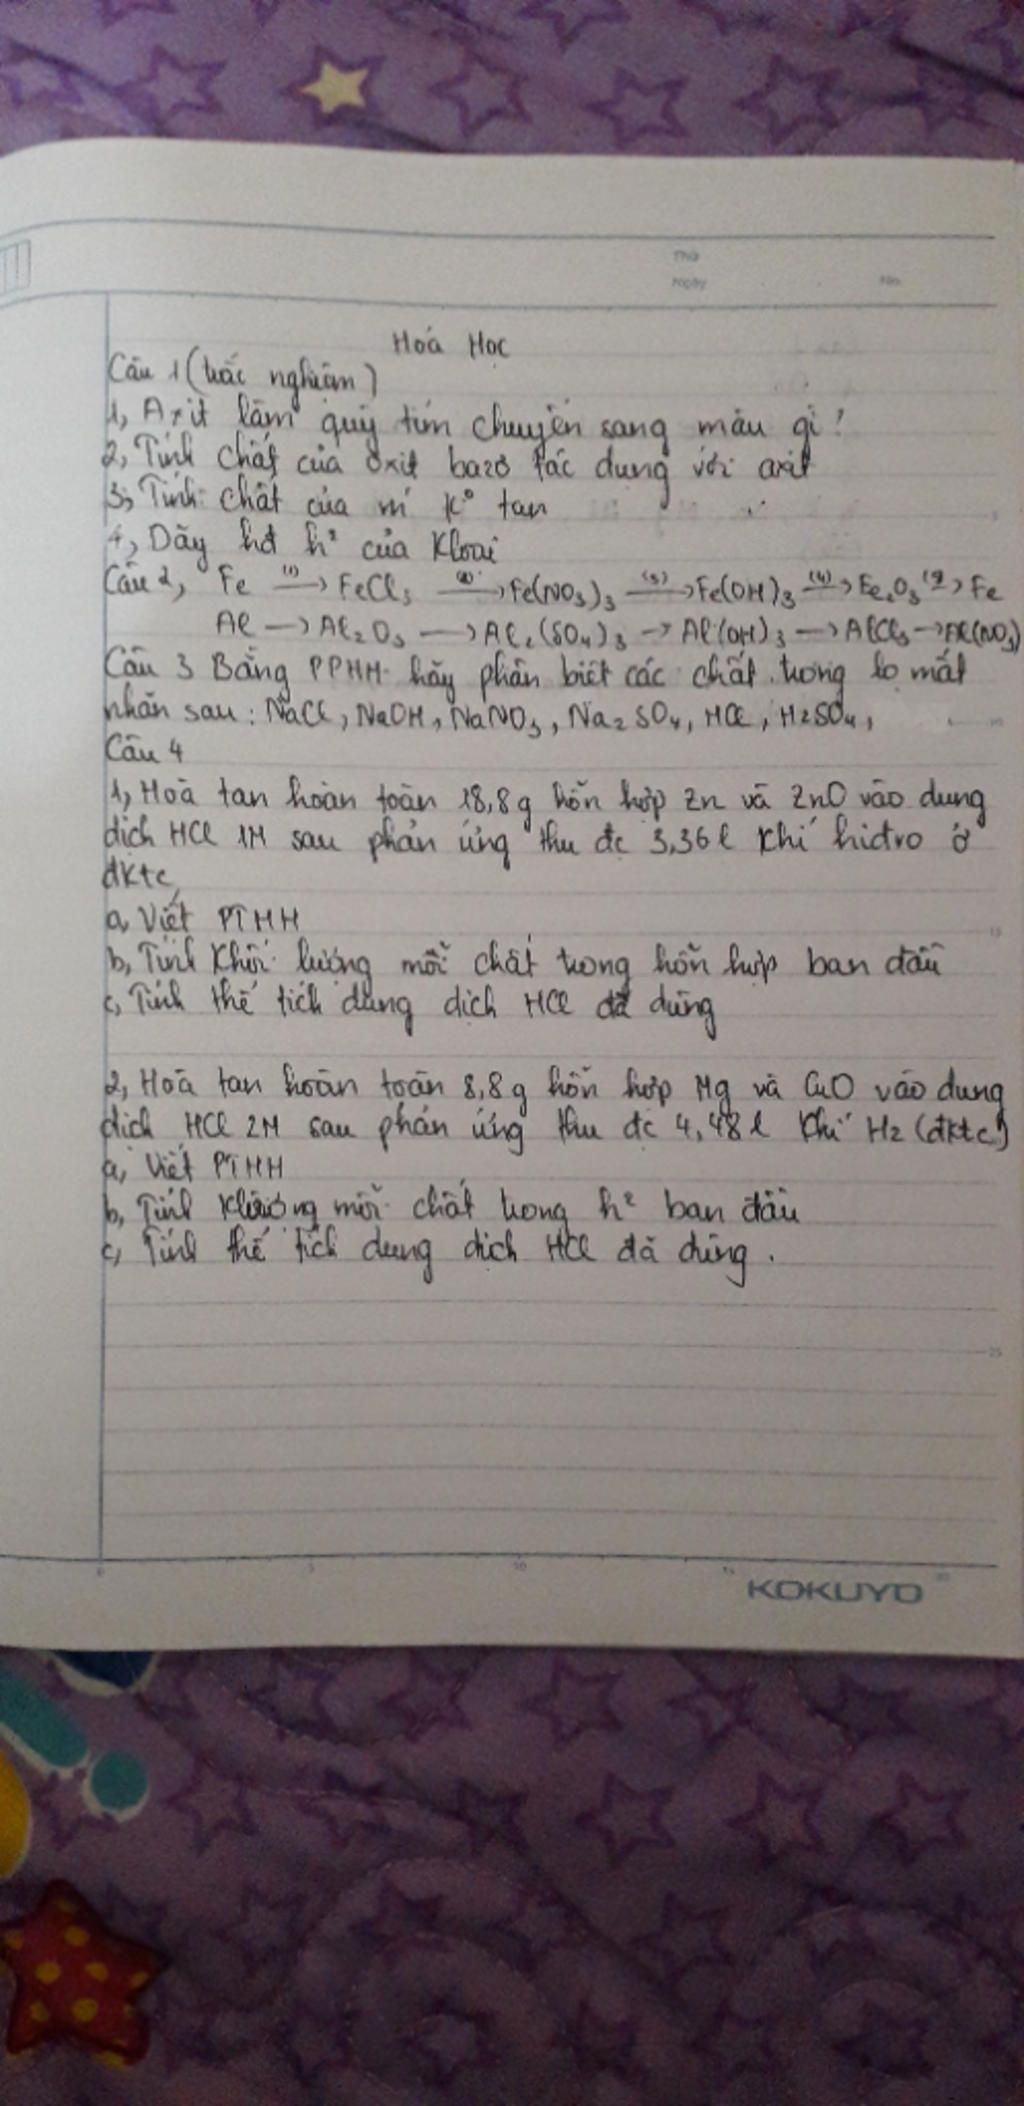 Thứ
Ngày No.
Hoá Học
Câu 1 (trắc nghiệm)
1, Axit làm quỳ tím chuyển sang màu gì?
2, Tính chất của oxit bazơ tác dụng với axit
3, Tính chất của m' K° tan
4, Dãy hđ h² của Kloai
Câu 2, Fe (1)→ FeCl3 (2)→ Fe(NO3)3 (3)→ Fe(OH)3 (4)→ Fe2O3 (5)→ Fe
Al → Al2O3 → Al2(SO4)3 → Al(OH)3 → AlCl3 → Al(NO3)
Câu 3 Bằng PPHH hãy phân biệt các chất trong lọ mất
nhãn sau: NaCl, NaOH, NaNO3, Na2SO4, HCl, H2SO4,
Câu 4
1, Hoà tan hoàn toàn 18,8g hỗn hợp Zn và ZnO vào dung
dịch HCl 1M sau phản ứng thu đc 3,36l khí hiđro ở
đktc
a, Viết PTHH
b, Tính khối lượng mỗi chất trong hỗn hợp ban đầu
c, Tính thể tích dung dịch HCl đã dùng
2, Hoà tan hoàn toàn 8,8g hỗn hợp Mg và CuO vào dung
dịch HCl 2M sau phản ứng thu đc 4,48l khí H2 (đktc)
a, Viết PTHH
b, Tính klượng mỗi chất trong h² ban đầu
c, Tính thể tích dung dịch HCl đã dùng.
KOKUYO